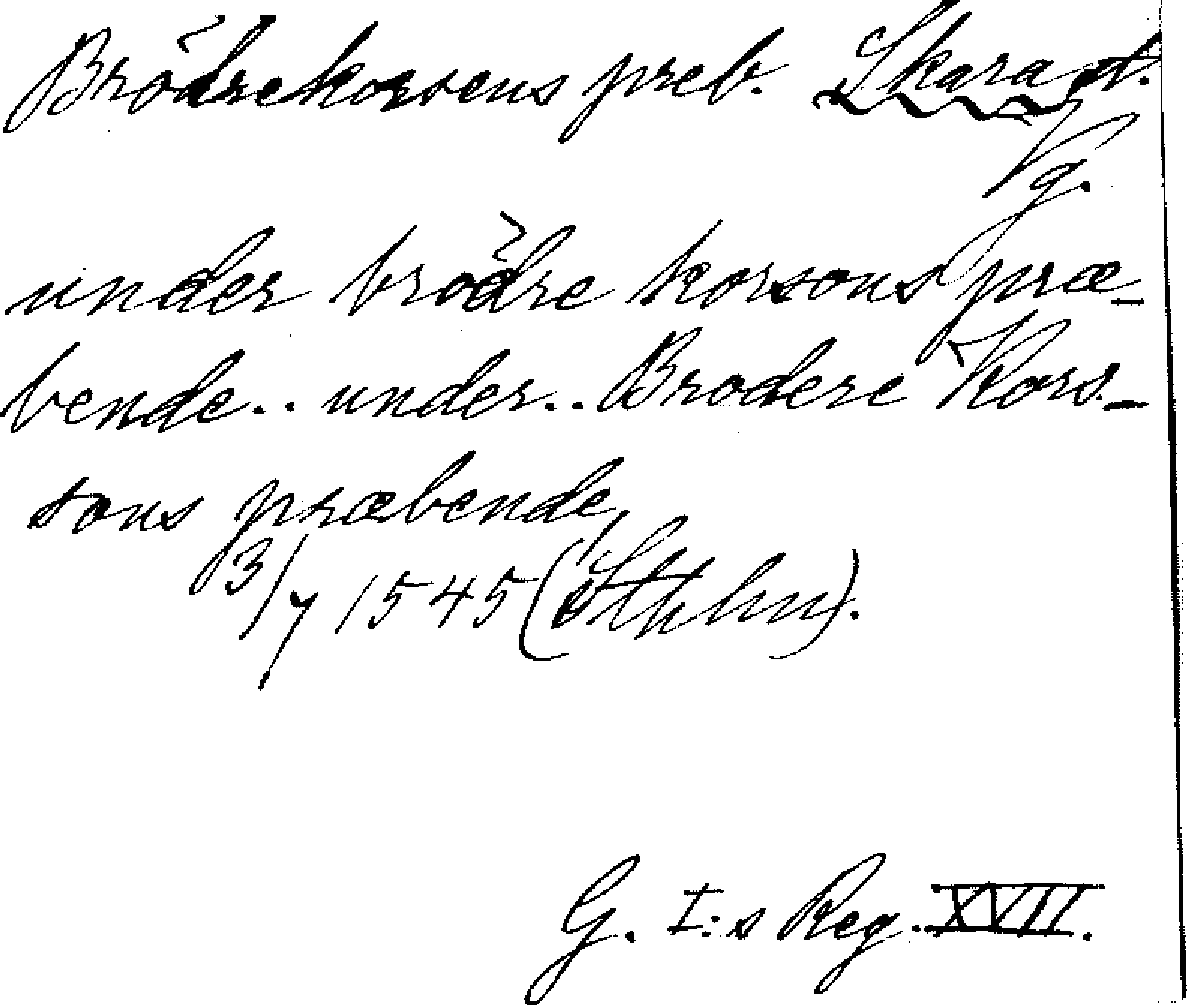 Brödrekorsens preb. Skara st.
Vg.
under brödre korsons præ-
bende.. under.. Brodere Kors-
sons præbende,
3/7 1545 (Sthlm).
G. I:s Reg. XVII.